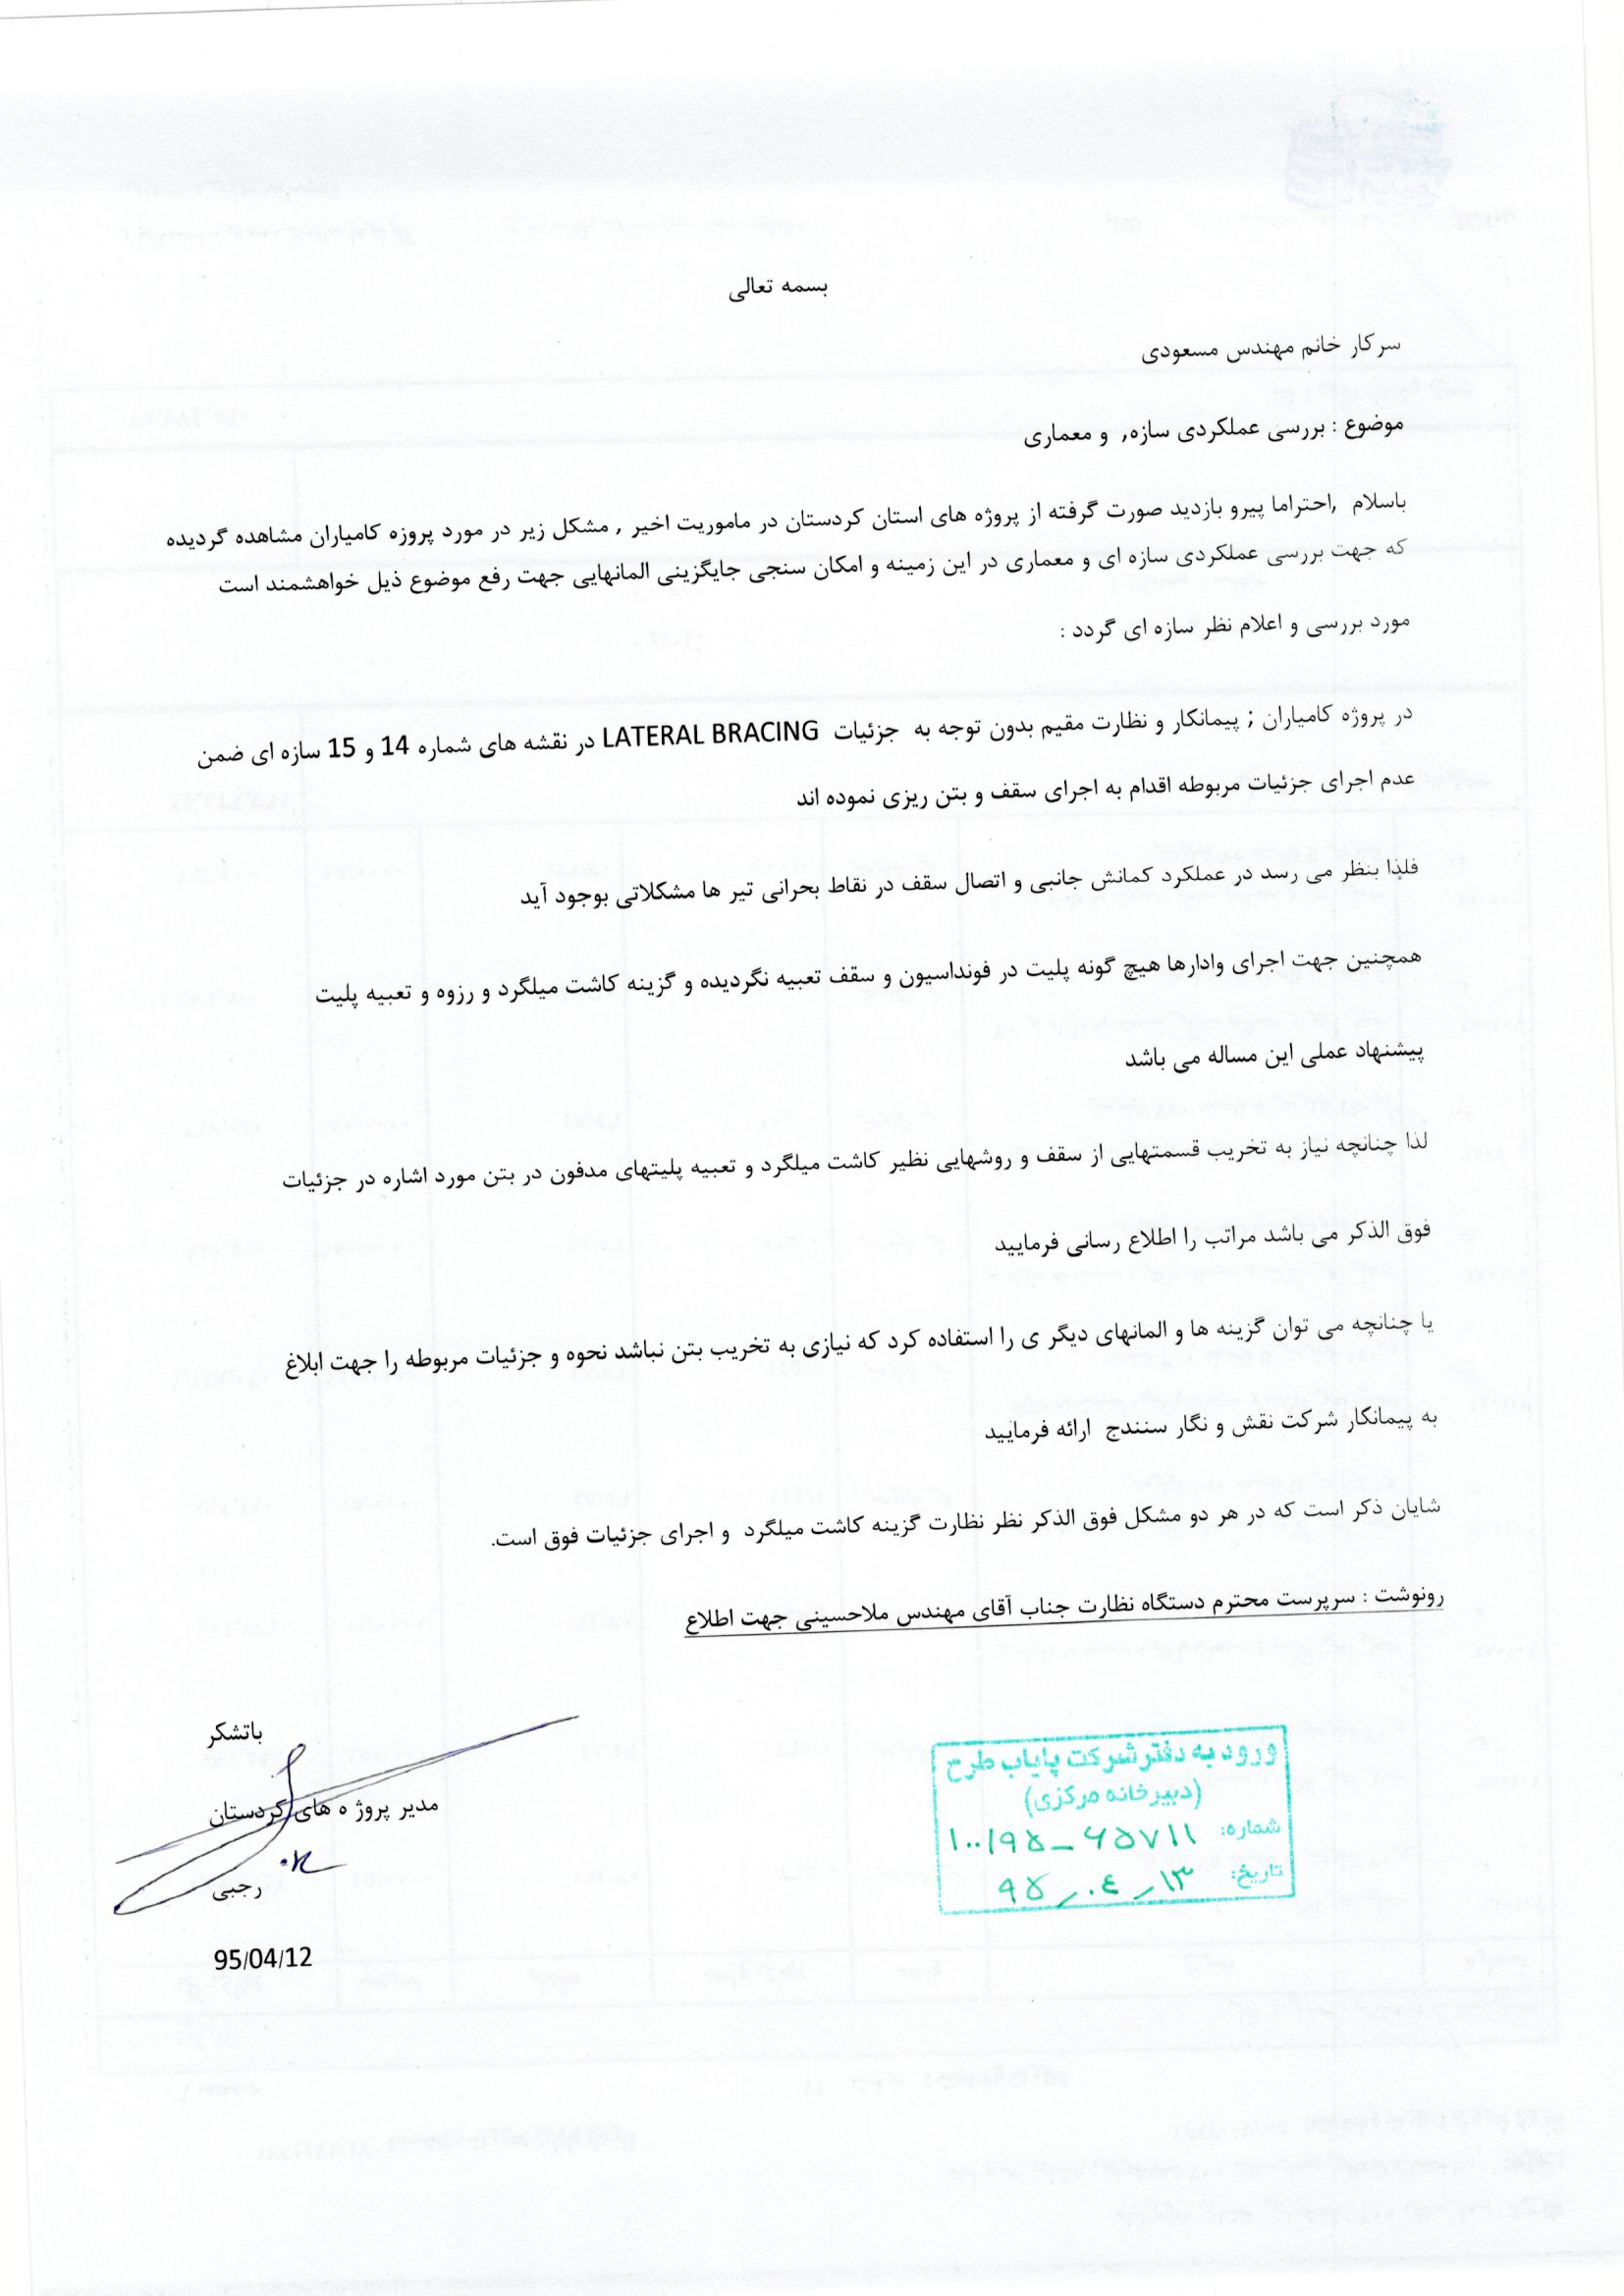 بسمه تعالی
سرکار خانم مهندس مسعودی
موضوع : بررسی عملکردی سازه, و معماری
باسلام ,احتراما پیرو بازدید صورت گرفته از پروژه های استان کردستان در ماموریت اخیر , مشکل زیر در مورد پروزه کامیاران مشاهده گردیده
که جهت بررسی عملکردی سازه ای و معماری در این زمینه و امکان سنجی جایگزینی المانهایی جهت رفع موضوع ذیل خواهشمند است
مورد بررسی و اعلام نظر سازه ای گردد :
در پروژه کامیاران ; پیمانکار و نظارت مقیم بدون توجه به جزئیات LATERAL BRACING در نقشه های شماره 14 و 15 سازه ای ضمن
عدم اجرای جزئیات مربوطه اقدام به اجرای سقف و بتن ریزی نموده اند
فلذا بنظر می رسد در عملکرد کمانش جانبی و اتصال سقف در نقاط بحرانی تیر ها مشکلاتی بوجود آید
همچنین جهت اجرای وادارها هیچ گونه پلیت در فونداسیون و سقف تعبیه نگردیده و گزینه کاشت میلگرد و رزوه و تعبیه پلیت
پیشنهاد عملی این مساله می باشد
لذا چنانچه نیاز به تخریب قسمتهایی از سقف و روشهایی نظیر کاشت میلگرد و تعبیه پلیتهای مدفون در بتن مورد اشاره در جزئیات
فوق الذکر می باشد مراتب را اطلاع رسانی فرمایید
یا چنانچه می توان گزینه ها و المانهای دیگر ی را استفاده کرد که نیازی به تخریب بتن نباشد نحوه و جزئیات مربوطه را جهت ابلاغ
به پیمانکار شرکت نقش و نگار سنندج ارائه فرمایید
شایان ذکر است که در هر دو مشکل فوق الذکر نظر نظارت گزینه کاشت میلگرد و اجرای جزئیات فوق است.
رونوشت : سرپرست محترم دستگاه نظارت جناب آقای مهندس ملاحسینی جهت اطلاع
باتشکر
مدیر پروژ ه های کردستان
رجبی
95/04/12
ورود به دفتر شرکت پایاب طرح
(دبیرخانه مرکزی)
شماره: ۱۰۰/۹۵-۶۵۷۱۱
تاریخ: ۹۵/۰۴/۱۳